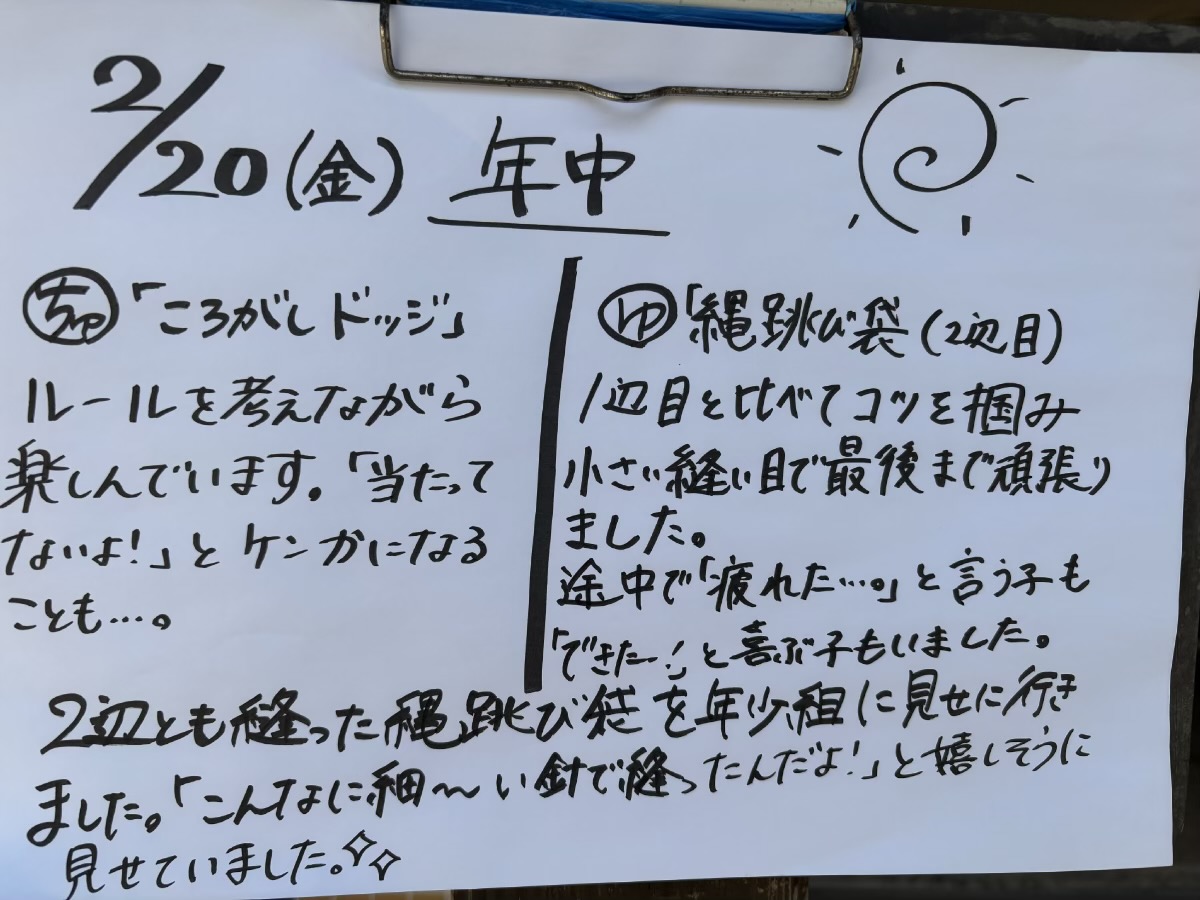 2/20(金) 年中
ちゅ「ころがしドッジ」
ルールを考えながら
楽しんでいます。「当たって
ないよ!」とケンカになる
ことも…。
ゆ「縄跳び袋(2辺目)
1辺目と比べてコツを掴み
小さい縫い目で最後まで頑張り
ました。
途中で「疲れた…。」と言う子も
「できたー!」と喜ぶ子もいました。
2辺とも縫った縄跳び袋を年少組に見せに行き
ました。「こんなに細〜い針で縫ったんだよ!」と嬉しそうに
見せていました。